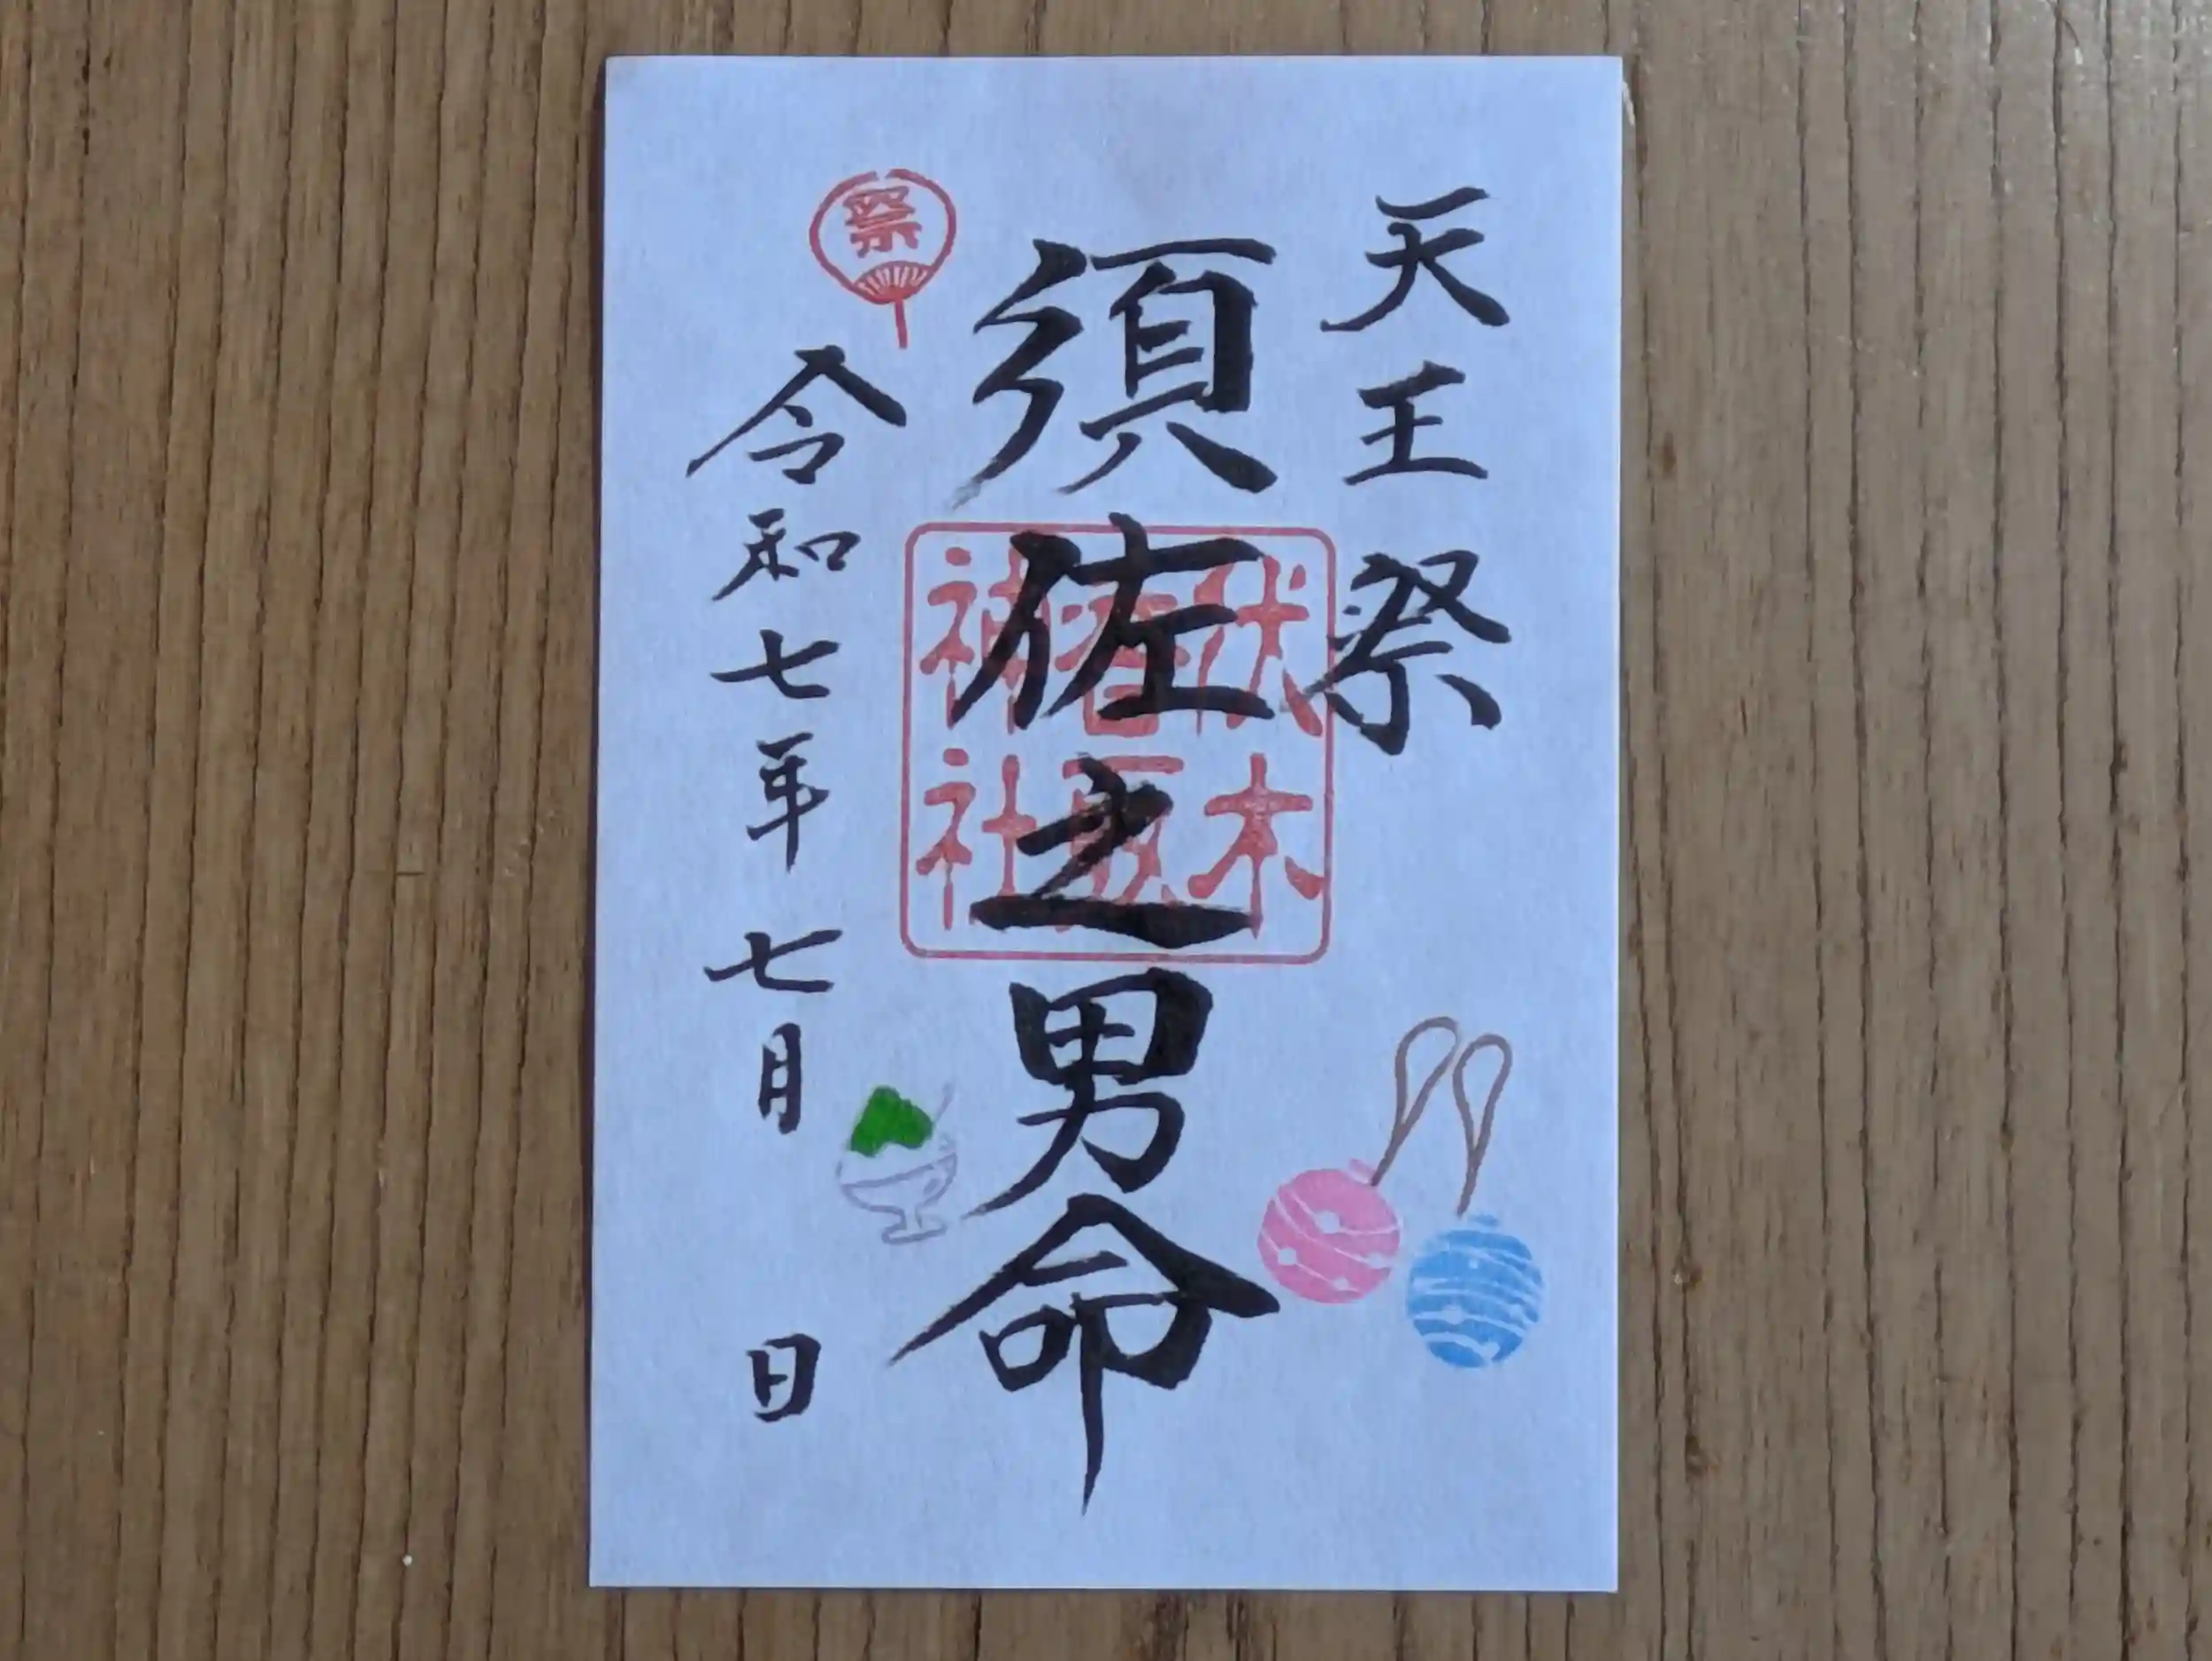 天王祭
須佐之男命
伏木
神社
祭
令和七年七月 日